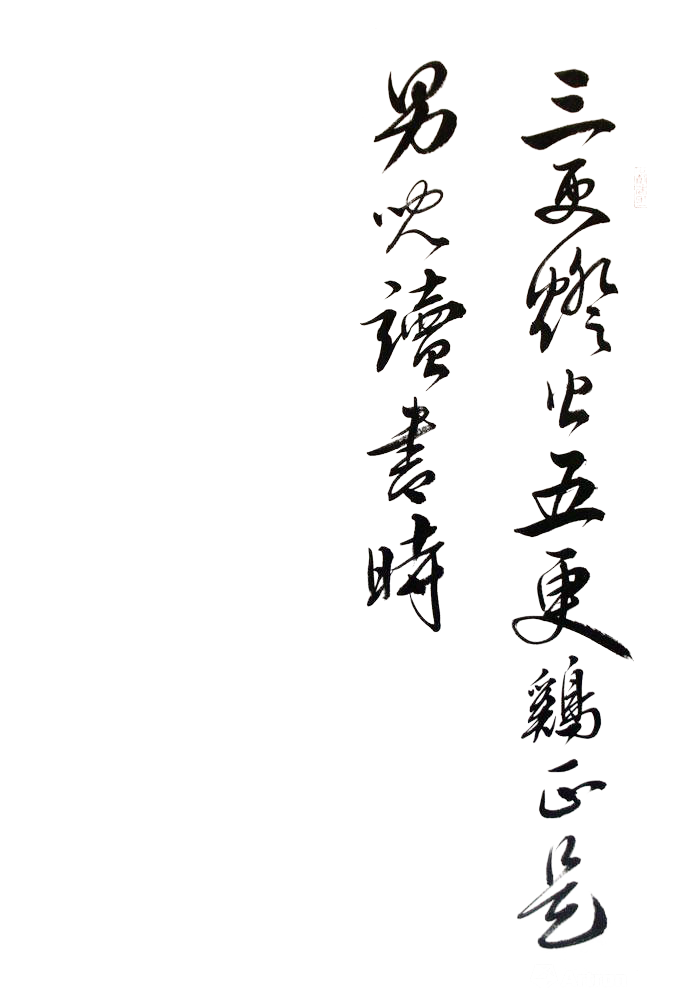 三更燈火五更鷄正是
男兒讀書時